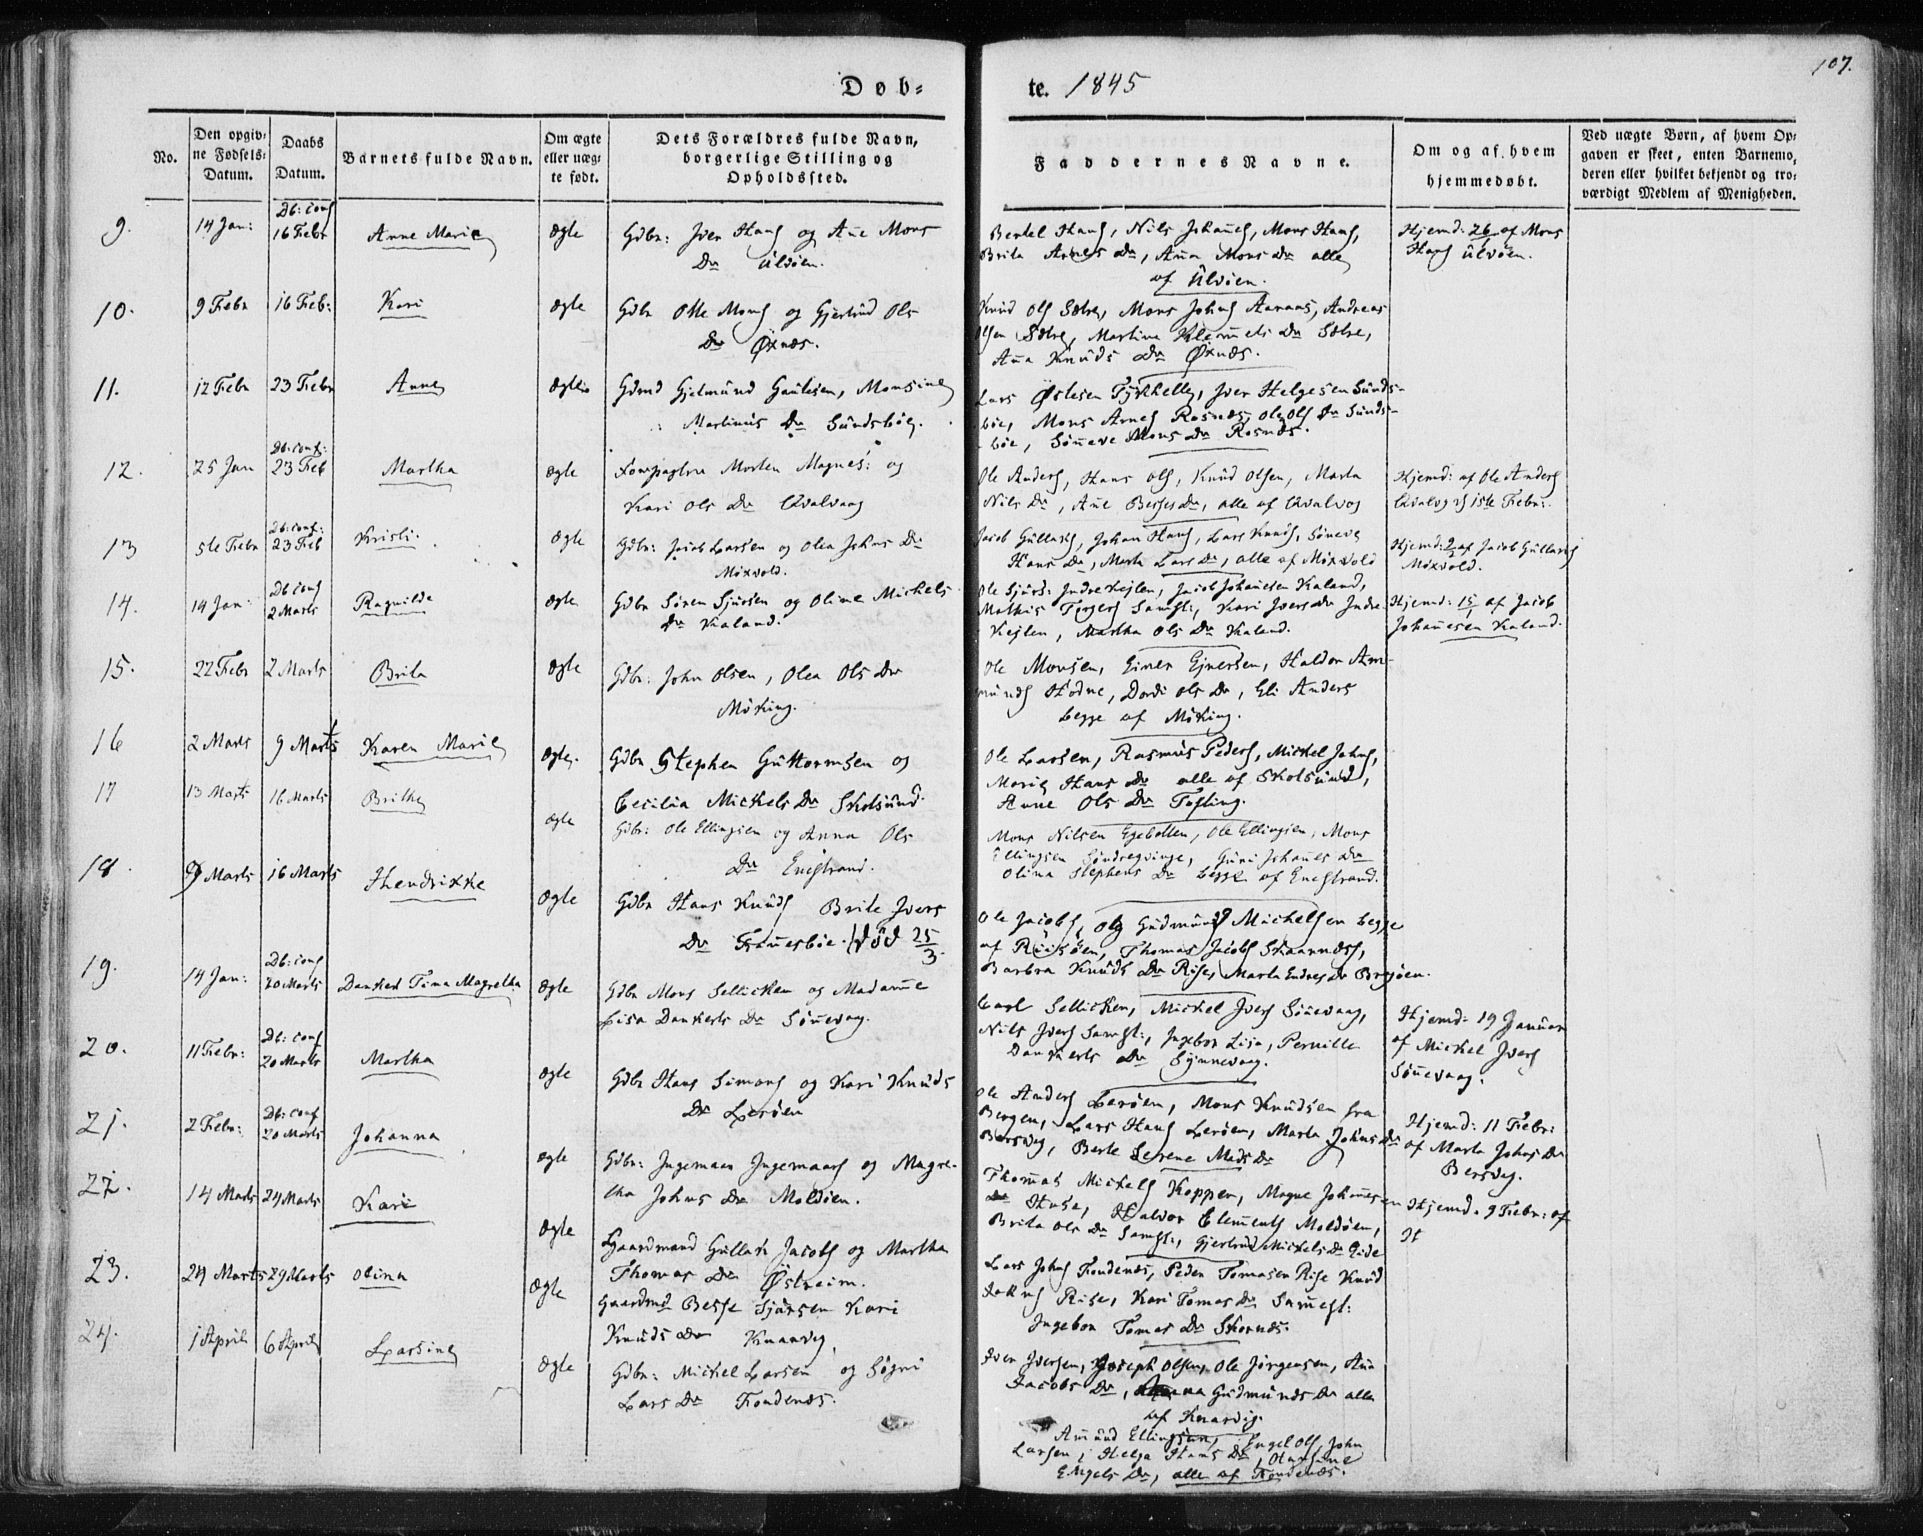 Døb=
te. 1845
107.
No.
Den opgiv=
ne Fødsels=
Datum.
Daabs
Datum.
Barnets fulde Navn.
Om ægte
eller uæg=
te født.
Dets Forældres fulde Navn,
borgerlige Stilling og
Opholdssted.
Faddernes Navne.
Om og af hvem
hjemmedøbt.
Ved uægte Børn, af hvem Op=
gaven er skeet, enten Barnemo=
deren eller hvilket bekjendt og tro=
værdigt Medlem af Menigheden.
9. 14 Jan: Db: conf 16 Febr Anne Marie ægte
Gdbr: Iver Hans og Ane Mons
Dr Ulvöen.
Bertel Hans, Nils Johans, Mons Hans,
Brita Arnes Dr, Anna Mons Dr alle
af Ulvöen.
Hjemd: 26 af Mons
Hans Ulvöen.
10. 9 Febr 16 Feb: Kari ægte
Gdbr Otte Mons og Gjertrud Ols
Dr Øxnæs.
Knud Ols Sælre, Mons Johns Aanaas, Andreas
Olsen Sælre, Martine Klemets Dr Sælre,
Ana Knuds Dr Øxnæs.
11. 12 Febr 23 Febr Anne ægte
Gdmd Gjelmund Gautesen, Monsine
Martinus Dr Sundsböe.
Lars Östesen Tyskhelle, Iver Helgesen Sunds-
böe, Mons Arnes Rosnæs, Ole Ols Dr Sunds-
böe, Söneve Mons Dr Rosnæs.
12. 25 Jan Db: conf: 23 Feb Martha ægte
Morten Magnes: og
Kari Ols Dr Qvalvaag
Ole Anders, Hans Ols, Knud Olsen, Marta
Nils Dr, Ane Berjes Dr, alle af Qvalvog
Hjemd: af Ole Anders
Qvalvog 1ste Febr:
13 5te Febr Db: conf: 23 Feb Kristi. ægte
Gdbr: Jacob Larsen og Olea Johns Dr
Möxvold.
Jacob Gullachs, Johan Hans, Lars Knuds, Söneve
Hans Dr, Marta Lars Dr, alle af Möxvold
Hjemd: 2 af Jacob Gullachs
Möxvold.
14. 14 Jan: Db conf 2 Marts Ragnilde ægte
Gdbr Sören Sjursen og Oline Michels
Dr Kaland.
Ole Sjurs: Indre Kejlen, Jacob Johanesen Kaland,
Mathis Samst:, Kari Ivers Dr Indre
Kejlen, Martha Ols Dr Kaland.
Hjemd: 15/1 af Jacob
Johanesen Kaland.
15. 22 Febr 2 Marts Brita ægte
Gdbr: John Olsen, Olea Ols Dr
Möking.
Ole Monsen, Einer Ejnersen, Haldor Am-
munds Hodne, Dordi Ols Dr, Eli Anders
begge af Möking.
16 2 Marts 9 Marts Karen Marie ægte.
Gdbr Stephen Guttormsen og
Cecilia Michels Dr Skolsund.
Ole Larsen, Rasmus Peders, Michel Johns,
Marie Hans Dr alle af Skolsund,
Anne Ols Dr Tofting.
17 13 Marts 16 Marts Brithe ægte
Gdbr: Ole Ellingsen og Anna Ols
Dr Enestrand.
Mons Nilsen Egebotten, Ole Ellingsen, Mons
Ellingsen, Guni Johanes Dr
Olina Stephens Dr begge af Enestrand.
18. 9 Marts 16 Marts Hendrikke ægte
Gdbr Hans Knuds Brite Ivers
Dr Fonnesböe. död 25/3.
Ole Jacobs, og Gudmund Michelsen begge
af Risöen, Thomas Jacobs Skaarnæss,
Barbra Knuds Dr Rise, Marta Endres Dr
19. 14 Jan: Db: conf 20 Marts Dankert Tina Magretha ægte
Gdbr Mons Sellicken og Madame
Lisa Dankerts Dr Sönevaag.
Carl Sellicken, Michel Ivers Sönevaag,
Nils Ivers Samst:, Ingebor Lisa, Pernille
Dankerts Dr Synnevaag.
Hjemd: 19 Januar
af Michel Ivers
Sönevaag.
20. 11 Febr: Db: conf 20 Marts Martha ægte
Gdbr Hans Simons og Kari Knuds
Dr Leröen
Ole Anders Leröen, Mons Knudsen fra
Bergen, Lars Hans Leröen, Marta Johns Dr
Bersvog, Berte Serene Mads Dr
Hjemd: 11 Febr:
af Marta Johns Dr
Bersvog.
21. 2 Febr: Db: conf 20 Marts Johanna ægte
Gdbr: Ingemaar Ingemaars og Magre-
tha Johns Dr Moldöen.
Thomas Michels Koppen, Magne Johanesen
Huse, Halvor Clements Moldöen,
Brita Ols Dr Samst:, Gjertrud Michels Dr Eide
Hjemd. 9 Febr: af
22. 14 Marts 24 Marts Kari ægte
Gaardmand Gullak Jacobs og Martha
Thomas Dr Östreim.
Lars Johns Fondenæs, Peder Tomasen Rise Knud
Rise, Kari Tomas Dr Samest:
Ingebor Tomas Dr Skornæs.
23. 24 Marts 29 Marts Olina ægte
Gaardmd Berje Sjursen Kari
Knuds Dr Knarvig.
Iver Iversen, Joseph Olsen, Ole Jörgensen, Ana
Jacobs Dr, Anna Gudmunds Dr alle
af Knarvig.
24. 1 April 6 April Larsine ægte
Gdbr: Michel Larsen og Sögni
Lars Dr Fondenæs.
Amund Ellingsen, Engel Ols, John
Larsen, Helga Hans Dr, Hansine
Engels Dr, alle af Fondenæs.